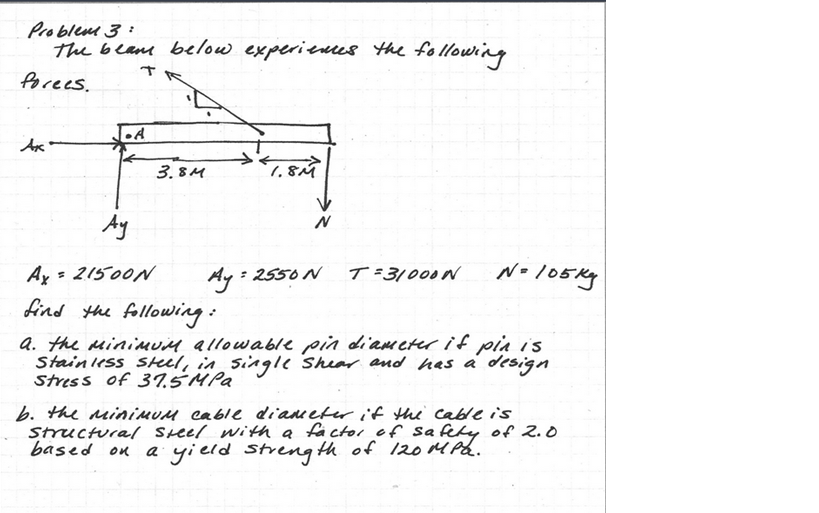 Problem 3:
The beam below experiences the following
forces.
T
1
1
.A
Ax
3.8M
1.8M
Ay
N
Ax = 21500N Ay = 2550N T = 31000N N = 105kg
find the following:
a. the minimum allowable pin diameter if pin is
stainless steel, in single shear and has a design
stress of 37.5MPa
b. the minimum cable diameter if the cable is
structural steel with a factor of safety of 2.0
based on a yield strength of 120 MPa.